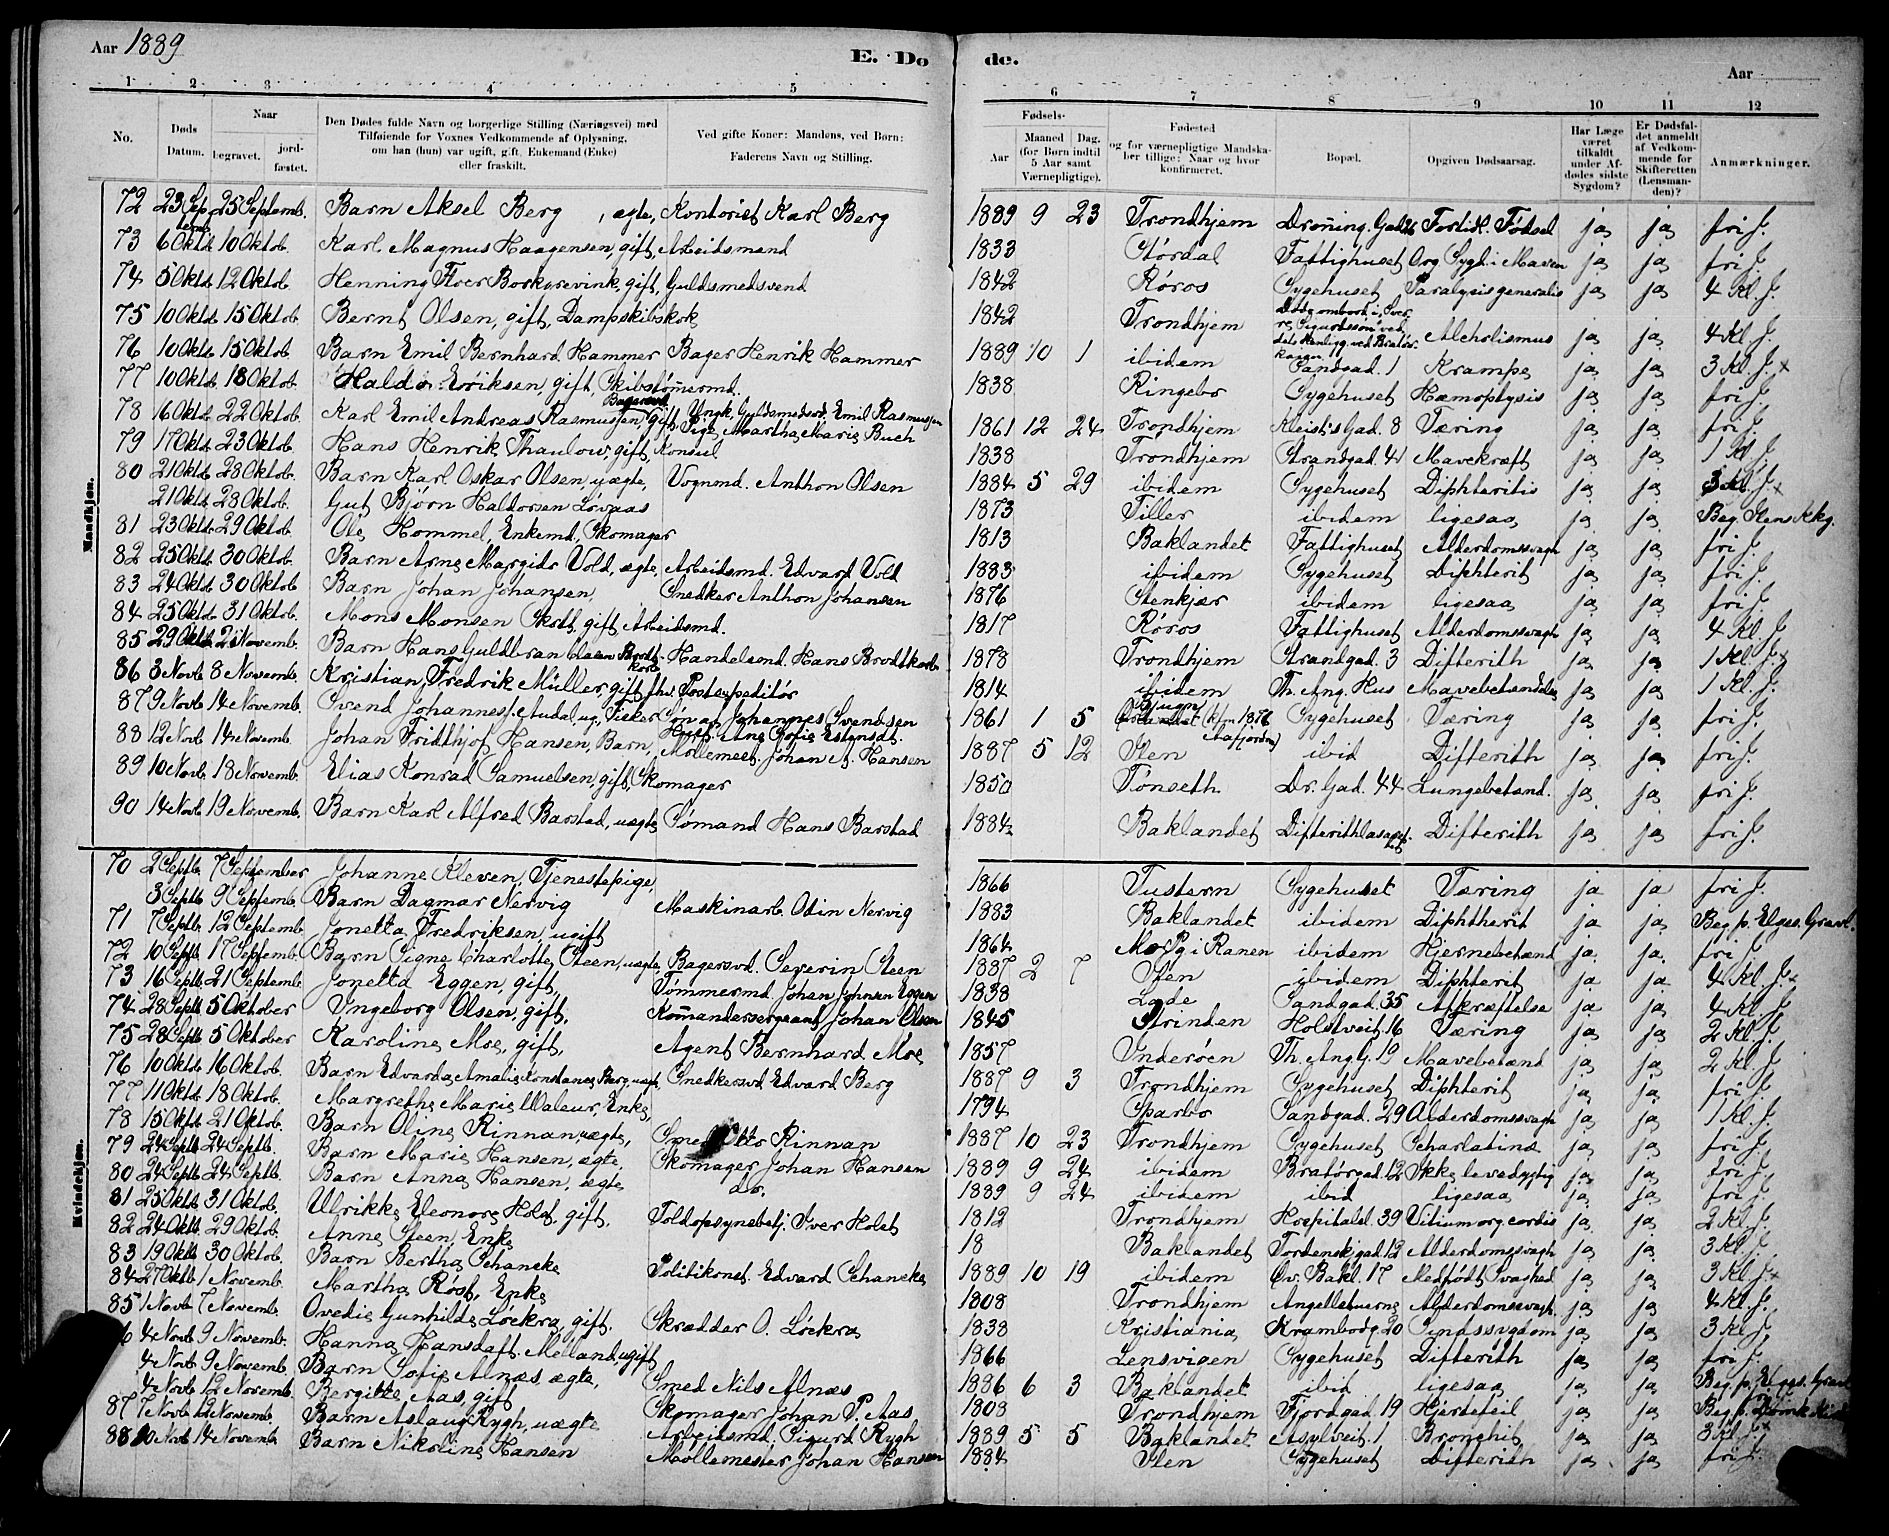 Aar 1889
E. Do de.
Aar
1 2 3 4 5 6 7 8 9 10 11 12
No.
Døds Datum.
Naar
begravet.
jordfæstet.
Den Dødes fulde Navn og borgerlige Stilling (Næringsvei) med Tilføiende for Voxnes Vedkommende af Oplysning, om han (hun) var ugift, gift, Enkemand (Enke) eller fraskilt.
Ved gifte Koner: Mandens, ved Børn: Faderens Navn og Stilling.
Fødsels-
Aar
Maaned Dag. (for Børn indtil 5 Aar samt Værnepligtige).
Fødested og for værnepligtige Mandskaber tillige: Naar og hvor konfirmeret.
Bopæl.
Opgiven Dødsaarsag.
Har Læge været tilkaldt under Afdødes sidste Sygdom?
Er Dødsfaldet anmeldt af Vedkommende for Skifteretten (Lensmanden)?
Anmærkninger.
Mandkjøn.
72 23 Sep 25 Septemb. Barn Aksel Berg, ægte, Kontorist Karl Berg 1889 9 23 Trondhjem Dronning. Gad 26 Fortidl. Fødsel ja ja fri J.
73 6 Oktb 10 Oktob. Karl Magnus Haagensen, gift, Arbeidsmand 1833 Størdal Fattighuset Org Sygd. i Maven ja ja fri J.
74 5 Oktb 12 Oktob. Henning Floer Borkgrevink, gift, Guldsmedsvend 1842 Røros Sygehuset Paralysis generalis ja ja 4 Kl. J.
75 10 Oktb 15 Oktob. Bernt Olsen, gift, Dampskibskok 1842 Trondhjem Alcholismus ja ja 4 Kl. J.
76 10 Oktb 15 Oktob. Barn Emil Bernhard Hammer Bager Henrik Hammer 1889 10 1 ibidem Sandgad. 1 Krampe ja ja 3 Kl. J. x
77 10 Oktb 18 Oktob. Haldo Eriksen, gift, Skibstømermd. 1838 Ringebo Sygehuset Hæmoptysis ja ja fri J.
78 16 Oktb 22 Oktob. Karl Emil Andreas Rasmussen, gift Bagersvd Ungk. Guldsmedsvd. Emil Rasmussen Pige Martha Marie Buch 1861 12 24 Trondhjem Kleists Gad. 8 Tæring ja ja fri J.
79 17 Oktb 23 Oktob. Hans Henrik Thaulow, gift, Konsul 1838 Trondhjem Strandgad. 41 Mavekræft ja ja 1 Kl J.
80 21 Oktb 28 Oktob. Barn Karl Oskar Olsen, uægte, Vognmd. Anthon Olsen 1884 5 29 ibidem Sygehuset Diphteritis ja ja 3 Kl. J. x
21 Oktb 28 Oktob. Gut Bjørn Haldorsen Løvaas 1873 Tiller ibidem ligesaa ja ja Beg.
81 23 Oktb 29 Oktob. Ole Hommel, Enkemd, Skomager 1813 Baklandet Fattighuset Alderdomssvagh ja ja fri J.
82 25 Oktb 30 Oktob. Barn Arne Margido Vold, ægte, Arbeidsmd. Edvard Vold 1883 ibidem Sygehuset Diphterit ja ja fri J.
83 24 Oktb 30 Oktob. Barn Johan Johansen, Snedker Anthon Johansen 1876 Stenkjær ibidem ligesaa ja ja fri J.
84 25 Oktb 31 Oktob. Mons Monsen Skott, gift, Arbeidsmd. 1817 Røros Fattighuset Alderdomssvagh ja ja 4 Kl. J.
85 29 Oktb 2 Novemb. Barn Hans Guldbran Brodtkorb Handelsmd. Hans Brodtkorb 1878 Trondhjem Strandgad. 3 Difterith ja ja 1 Kl. J. x
86 3 Novb 8 Novemb. Kristian Fredrik Müller, gift fhv. Postexpeditør 1814 ibidem Th. Ang. Hus Mavebetændelse ja ja 1 Kl. J.
87 9 Novb 14 Novemb. Svend Johannes. Audal, ug, Fisker Søn af Johannes Svendsen 1861 1 5 Bjugn Sygehuset Tæring ja ja fri J.
88 12 Novb 14 Novemb. Johan Fridthjof Hansen, Barn, Møllemest. Johan A. Hansen 1887 5 12 Ilen ibid Difterith ja ja fri J.
89 10 Novb 18 Novemb. Elias Konrad Samuelsen, gift, Skomager 1850 Tønseth Dr. Gad. 44 Lungebetænd. ja ja fri J.
90 14 Novb 19 Novemb. Barn Karl Alfred Barstad, uægte Sømand Hans Barstad 1884 Baklandet Difterithlasaret Difterith ja ja fri J.
Kvindekjøn.
70 2 Septb. 7 September Johanne Kleven, Tjenestepige, 1866 Tustern Sygehuset Tæring ja ja fri J.
3 Septb 9 Septemb. Barn Dagmar Nervig Maskinarb. Odin Nervig 1883 Baklandet ibidem Diphtherit ja ja Beg. p. Elges. Gravl.
71 7 Septb. 12 Septemb. Jonetta Fredriksen, ugift 1864 Mo Pg i Ranen ibidem Hjernebetænd ja ja fri J.
72 10 Septb. 17 Septemb. Barn Signe Charlotte Steen, uægte, Bagersvd. Severin Steen 1887 2 7 Ilen ibidem Diphterit ja ja 4 Kl. J. x
73 16 Septb 21 Septemb. Jonetta Eggen, gift, Tømmermd. Johan Johnsen Eggen 1838 Lade Sandgad. 35 Afkræftelse ja ja 4 Kl. J.
74 28 Septb 5 Oktober Ingeborg Olsen, gift, Kommandersergeant Johan Olsen 1845 Strinden Holstveit. 16 Tæring ja ja 2 Kl. J.
75 28 Septb 5 Oktober Karoline Moe, gift, Agent Bernhard Moe 1857 Inderøen Th. Ang G. 19 Mavebetænd ja ja 2 Kl. J
76 10 Oktb 16 Oktob. Barn Edvarda Amalie Konstance Berg, uægt, Snedkersvd. Edvard Berg 1887 9 3 Trondhjem Sygehuset Diphterit ja ja fri J.
77 11 Oktb 18 Oktob. Margrethe Marie Waleur, Enke, 1794 Sparbo Sandgad. 29 Alderdomssvagh ja ja 1 Kl. J.
78 15 Oktb 21 Oktob. Barn Oline Rinnan, uægte, Smed Otto Rinnan 1887 10 23 Trondhjem Sygehuset Scharlatina ja ja fri J.
79 24 Septb 24 Septb. Barn Marie Hansen, ægte, Skomager Johan Hansen 1889 9 24 ibidem Bratørgad. 12 Ikke levedygtig ja ja fri J.
80 24 Septb 24 Septb. Barn Anna Hansen, ægte do. 1889 9 24 ibidem ibid ligesaa ja ja fri J.
81 25 Oktb 31 Oktob. Ulrikke Eleonore Holst, gift, Toldopsynsbetj. Iver Holst 1812 Trondhjem Hospitalsl. 39 Vitium org. cordis ja ja 2 Kl. J.
82 24 Oktb 29 Oktob. Anne Steen, Enke 18 Baklandet Tordenskgad. 12 Alderdomssvagh ja ja 3 Kl. J.
83 19 Oktb 30 Oktob. Barn Bertha Schancke Politikonst. Edvard Schancke 1889 10 19 ibidem Øv. Bakl. 17 Medfødt Svaghed ja ja 3 Kl. J. x
84 27 Oktb 1 Novemb. Martha Røst, Enke 1808 Trondhjem Angelltuerne Alderdomssvagh. ja ja 4 Kl. J.
85 1 Novb 7 Novemb. Ovedie Gunhilde Løckra, gift. Skrædder O. Løckra 1838 Kristiania Krambodg. 20 Sindssygdom ja ja 3 Kl. J.
6 4 Novb 9 Novemb. Hanna Hansdatt. Melland, ugift 1866 Lensvigen Sygehuset Difterith ja ja fri J.
4 Novb 9 Novemb. Barn Sofie Alnæs, ægte, Smed Nils Alnæs 1886 6 3 Baklandet ibid ligesaa ja ja Beg. p. Elges. Gravl
4 Novb 12 Novemb. Bergitte Aas, gift Skomager Johan P. Aas 1808 Trondhjem Fjordgad 19 Hjertefeil ja ja Beg. p.
87 7 Novb 12 Novemb. Barn Aslaug Rygh, uægte Arbeidsmd. Sigurd Rygh 1889 5 5 Baklandet Asylveit. 1 Bronchit ja ja 3 Kl. J. x
88 10 Novb 14 Novemb. Barn Nikoline Hansen Møllemester Johan Hansen 1884 Ilen Sygehuset Difterith ja ja fri J.